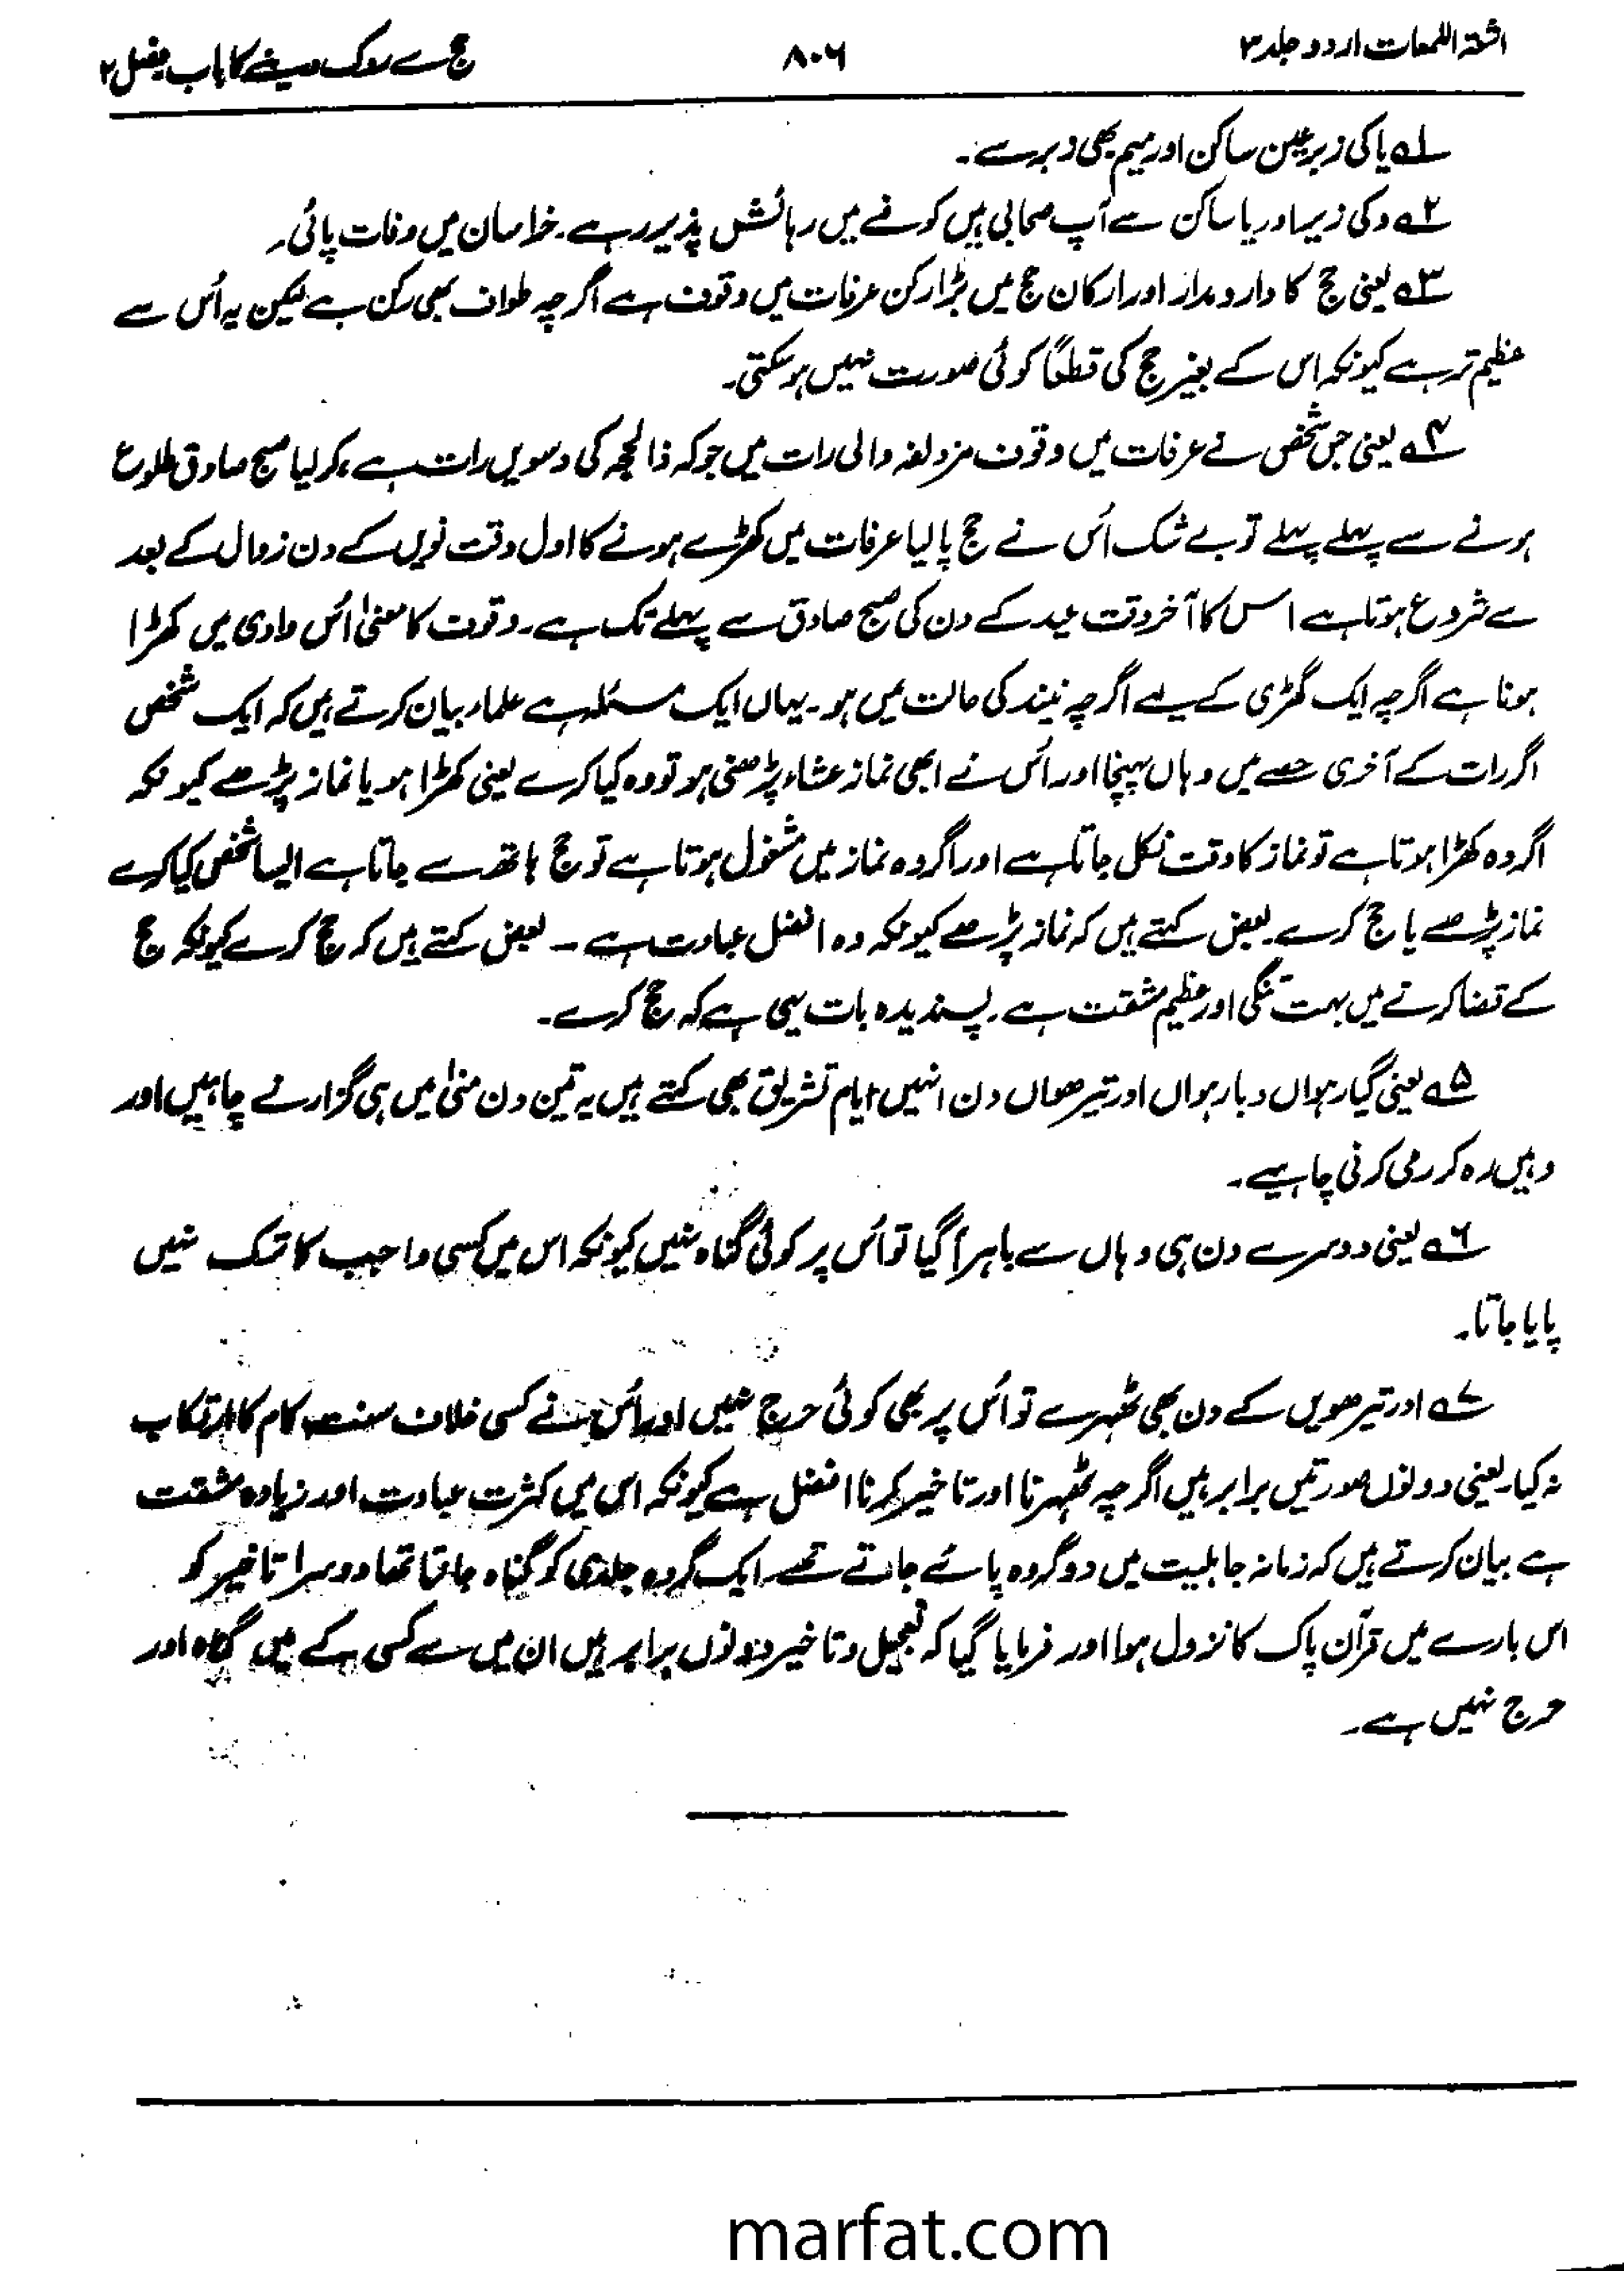 اشعۃ اللمعات اردو جلد ۳
۸۰۶
حج سے روک دینے کا باب فصل ۲
۱ یا کی زبر عین ساکن اور میم بھی زبر سے۔
۲ د کی زیر اور یا ساکن سے آپ صحابی ہیں کوفے میں رہائش پذیر رہے۔ خراسان میں وفات پائی۔
۳ یعنی حج کا دارومدار اور ارکان حج میں بڑا رکن عرفات میں وقوف ہے اگرچہ طواف بھی رکن ہے لیکن یہ اُس سے
عظیم تر ہے کیونکہ اس کے بغیر حج کی قطعاً کوئی صورت نہیں ہو سکتی۔
۴ یعنی جس شخص نے عرفات میں وقوف مزدلفہ والی رات میں جو کہ ذالحجہ کی دسویں رات ہے، کر لیا صبح صادق طلوع
ہونے سے پہلے پہلے تو بے شک اُس نے حج پا لیا عرفات میں کھڑے ہونے کا اول وقت نویں کے دن زوال کے بعد
سے شروع ہوتا ہے اس کا آخر وقت عید کے دن کی صبح صادق سے پہلے تک ہے۔ وقوف کا معنیٰ اُس وادی میں کھڑا
ہونا ہے اگرچہ ایک گھڑی کے لیے اگرچہ نیند کی حالت میں ہو۔ یہاں ایک مسئلہ ہے علماء بیان کرتے ہیں کہ ایک شخص
اگر رات کے آخری حصے میں وہاں پہنچا اور اُس نے ابھی نماز عشاء پڑھنی ہو تو وہ کیا کرے یعنی کھڑا ہو یا نماز پڑھے کیونکہ
اگر وہ کھڑا ہوتا ہے تو نماز کا وقت نکل جاتا ہے اور اگر وہ نماز میں مشغول ہوتا ہے تو حج ہاتھ سے جاتا ہے ایسا شخص کیا کرے
نماز پڑھے یا حج کرے۔ بعض کہتے ہیں کہ نماز پڑھے کیونکہ وہ افضل عبادت ہے ۔ بعض کہتے ہیں کہ حج کرے کیونکہ حج
کے قضا کرنے میں بہت تنگی اور عظیم مشقت ہے۔ پسندیدہ بات یہی ہے کہ حج کرے۔
۵ یعنی گیارہواں و بارہواں اور تیرھواں دن انہیں ایام تشریق بھی کہتے ہیں یہ تین دن منیٰ میں ہی گزارنے چاہیں اور
وہیں رہ کر رمی کرنی چاہیے۔
۶ یعنی دوسرے دن ہی وہاں سے باہر آ گیا تو اُس پر کوئی گناہ نہیں کیونکہ اس میں کسی واجب کا ترک نہیں
پایا جاتا۔
۷ اور تیرھویں کے دن بھی ٹھہرے تو اُس پر بھی کوئی حرج نہیں اور اُس نے کسی خلاف سنت کام کا ارتکاب
نہ کیا۔ یعنی دونوں صورتیں برابر ہیں اگرچہ ٹھہرنا اور تاخیر کرنا افضل ہے کیونکہ اس میں کثرت عبادت اور زیادہ مشقت
ہے بیان کرتے ہیں کہ زمانہ جاہلیت میں دو گروہ پائے جاتے تھے۔ ایک گروہ جلدی کو گناہ جانتا تھا دوسرا تاخیر کو
اس بارے میں قرآن پاک کا نزول ہوا اور فرمایا گیا کہ تعجیل و تاخیر دونوں برابر ہیں ان میں سے کسی کے میں گناہ اور
حرج نہیں ہے۔
marfat.com